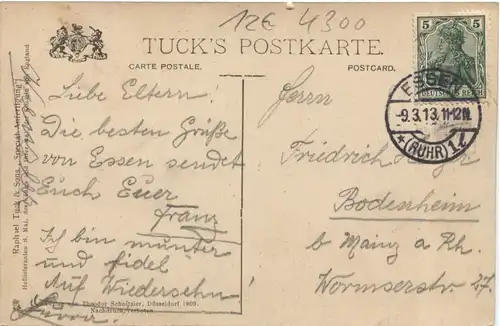 12€ 4300
TUCK'S POSTKARTE.
CARTE POSTALE.
POSTCARD.
5 5
DEUTSCHES REICH
ESSEN
-9.3.13.11-12N.
* (RUHR) 1
Liebe Eltern!
Die besten Grüße
von Essen sendet
Euch Euer
Franz
Ich bin munter
und fidel
Auf Wiedersehn!
Herrn
Friedrich
Bodenheim
b Mainz a Rh.
Wormserstr 27.
Raphael Tuck & Sons.
Theodor Scholtzler, Düsseldorf
Nachdruck verboten.